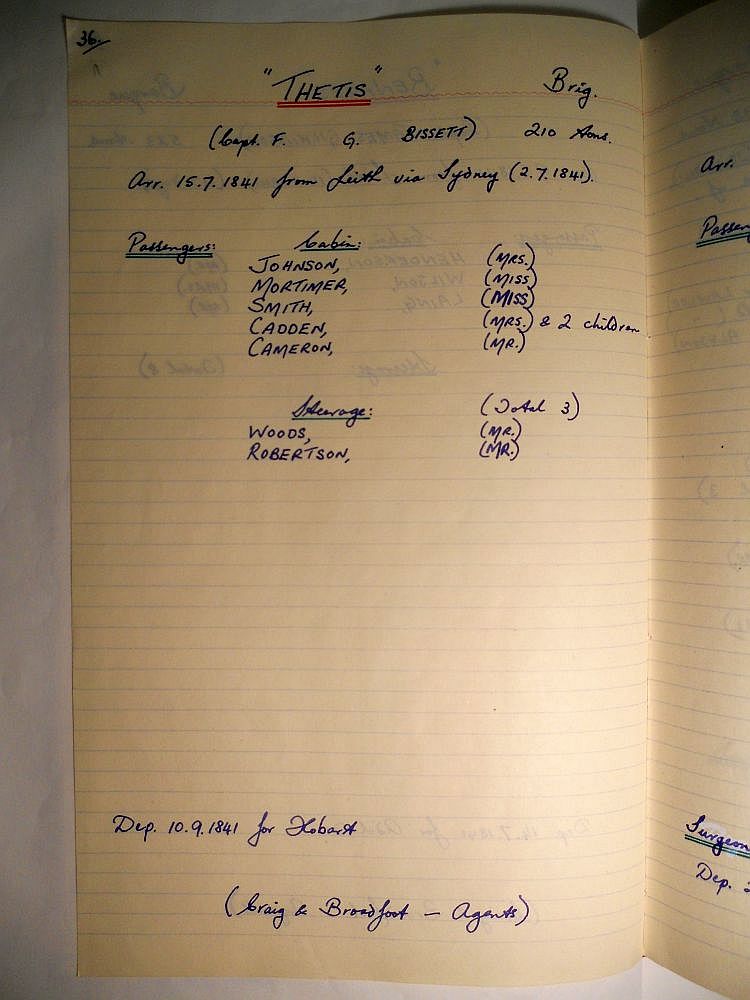 36.
"THETIS" Brig.
(Capt. F. G. BISSETT) 210 tons.
Arr. 15.7.1841 from Leith via Sydney (2.7.1841).
Passengers: Cabin:
JOHNSON, (MRS.)
MORTIMER, (MISS)
SMITH, (MISS)
CADDEN, (MRS.) & 2 children
CAMERON, (MR.)
Steerage: (Total 3)
WOODS, (MR.)
ROBERTSON, (MR.)
Dep. 10.9.1841 for Hobart
(Craig & Broadfoot — Agents)
Arr.
Surgeon
Dep.